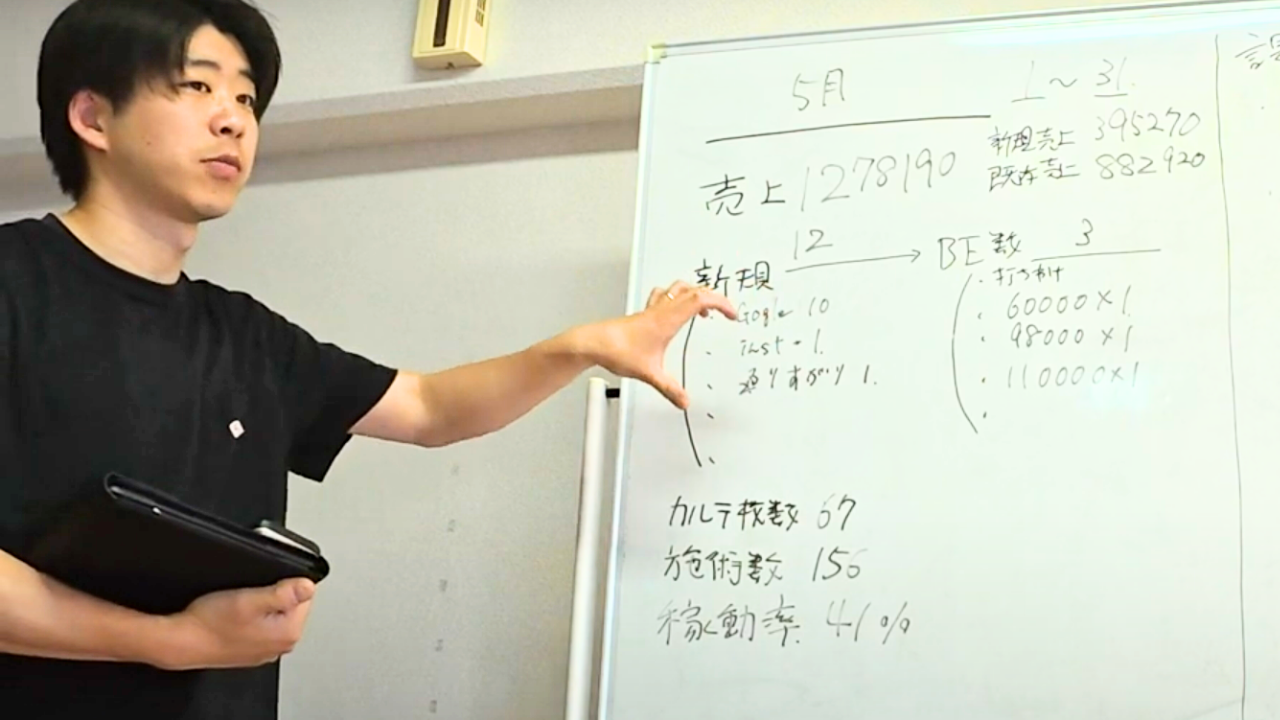 5月
1〜31
新規売上 395270
既存売上 882920
売上 1278190
新規 12 → BE数 3
・打ち分け
・Gogle 10
・60000×1
・inst 1
・98000×1
・通りすがり 1
・110000×1
カルテ枚数 67
施術数 156
稼働率 41%